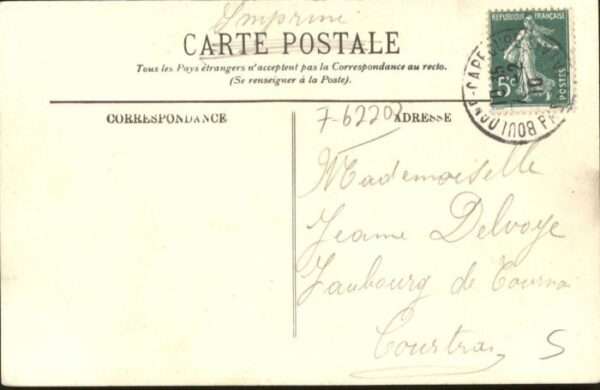 Imprimé
CARTE POSTALE
Tous les Pays étrangers n'acceptent pas la Correspondance au recto.
(Se renseigner à la Poste).
RÉPUBLIQUE FRANÇAISE
5c
POSTES
CORRESPONDANCE
ADRESSE
7-62202
Mademoiselle
Jeanne Delvoye
Faubourg de Tournai
Courtrai